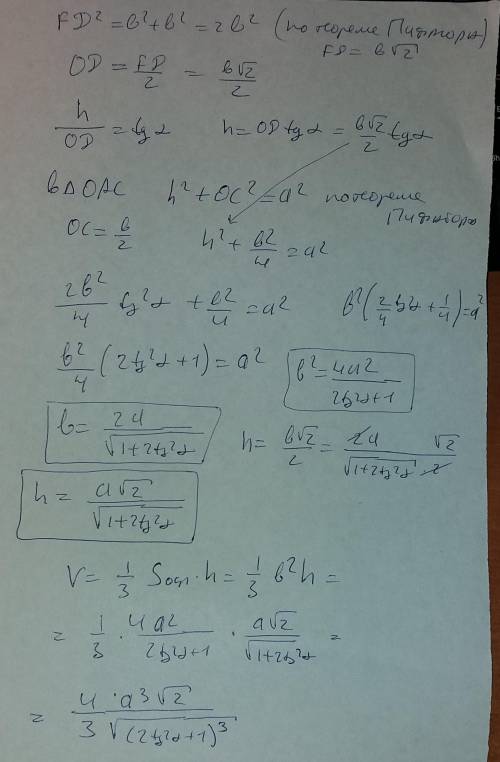 FD² = в² + в² = 2в² (по теореме Пифагора)
FD = в√2
OD = FD/2 = в√2/2
h/OD = tg α h = OD tg α = в√2/2 tg α
в △ OAC h² + OC² = a² по теореме Пифагора
OC = в/2 h² + в²/4 = a²
2в²/4 tg²α + в²/4 = a² в²(2/4 tg²α + 1/4) = a²
в²/4 (2tg²α + 1) = a² в² = 4a²/(2tg²α + 1)
в = 2a/√(1 + 2tg²α) h = в√2/2 = 2a √2/(√(1 + 2tg²α) · 2)
h = a√2/√(1 + 2tg²α)
V = 1/3 Sосн · h = 1/3 в²h =
= 1/3 · 4a²/(2tg²α + 1) · a√2/√(1 + 2tg²α) =
= 4 · a³√2/(3√(2tg²α + 1)³)